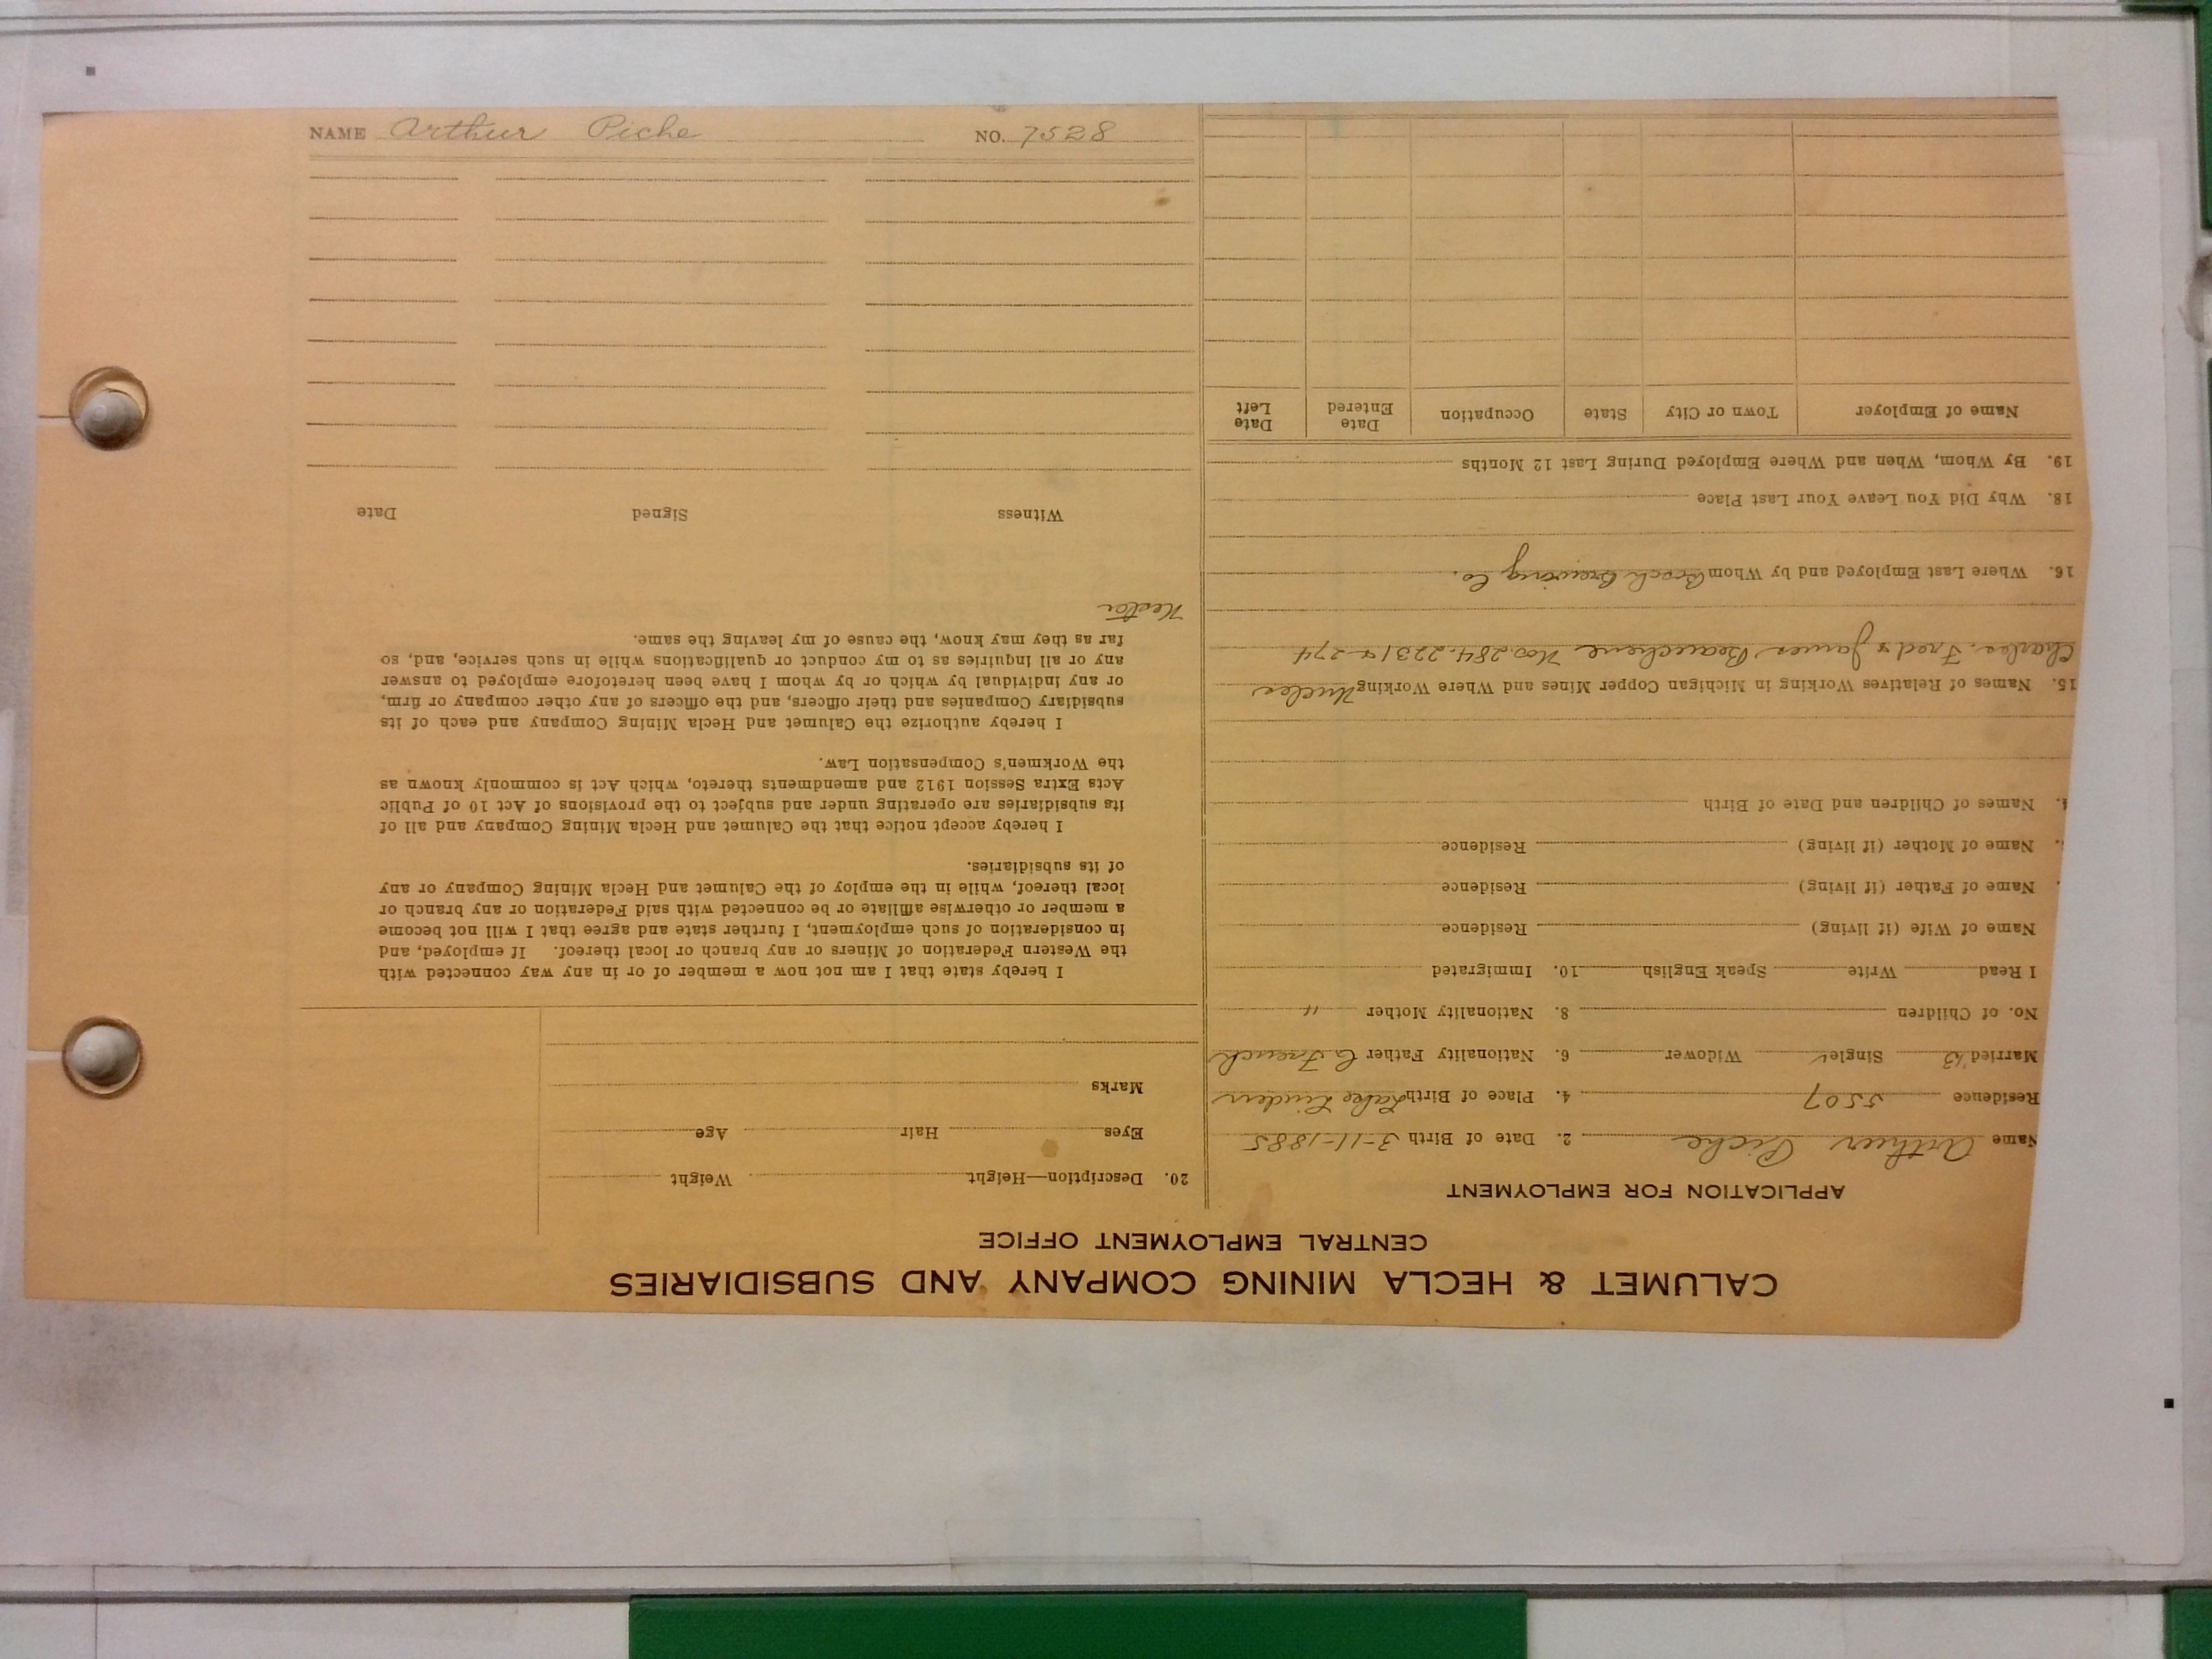 CALUMET & HECLA MINING COMPANY AND SUBSIDIARIES
CENTRAL EMPLOYMENT OFFICE
APPLICATION FOR EMPLOYMENT
Name Arthur Piche 2. Date of Birth 3-11-1885
Residence 5507 4. Place of Birth Lake Linden
Married '13 Single ✓ Widower 6. Nationality Father C. French
No. of Children 8. Nationality Mother "
I Read Write Speak English 10. Immigrated
Name of Wife (if living) Residence
Name of Father (if living) Residence
Name of Mother (if living) Residence
Names of Children and Date of Birth
15. Names of Relatives Working in Michigan Copper Mines and Where Working Uncles
Charles, Fred & James Beauchene Nos. 284-2231 & 274
16. Where Last Employed and by Whom Bosch Brewing Co.
18. Why Did You Leave Your Last Place
19. By Whom, When and Where Employed During Last 12 Months
Name of Employer Town or City State Occupation Date Entered Date Left
20. Description—Height Weight
Eyes Hair Age
Marks
I hereby state that I am not now a member of or in any way connected with
the Western Federation of Miners or any branch or local thereof. If employed, and
in consideration of such employment, I further state and agree that I will not become
a member or otherwise affiliate or be connected with said Federation or any branch or
local thereof, while in the employ of the Calumet and Hecla Mining Company or any
of its subsidiaries.
I hereby accept notice that the Calumet and Hecla Mining Company and all of
its subsidiaries are operating under and subject to the provisions of Act 10 of Public
Acts Extra Session 1912 and amendments thereto, which Act is commonly known as
the Workmen's Compensation Law.
I hereby authorize the Calumet and Hecla Mining Company and each of its
subsidiary Companies and their officers, and the officers of any other company or firm,
or any individual by which or by whom I have been heretofore employed to answer
any or all inquiries as to my conduct or qualifications while in such service, and, so
far as they may know, the cause of my leaving the same.
Nestor
Witness Signed Date
NAME Arthur Piche NO. 7528